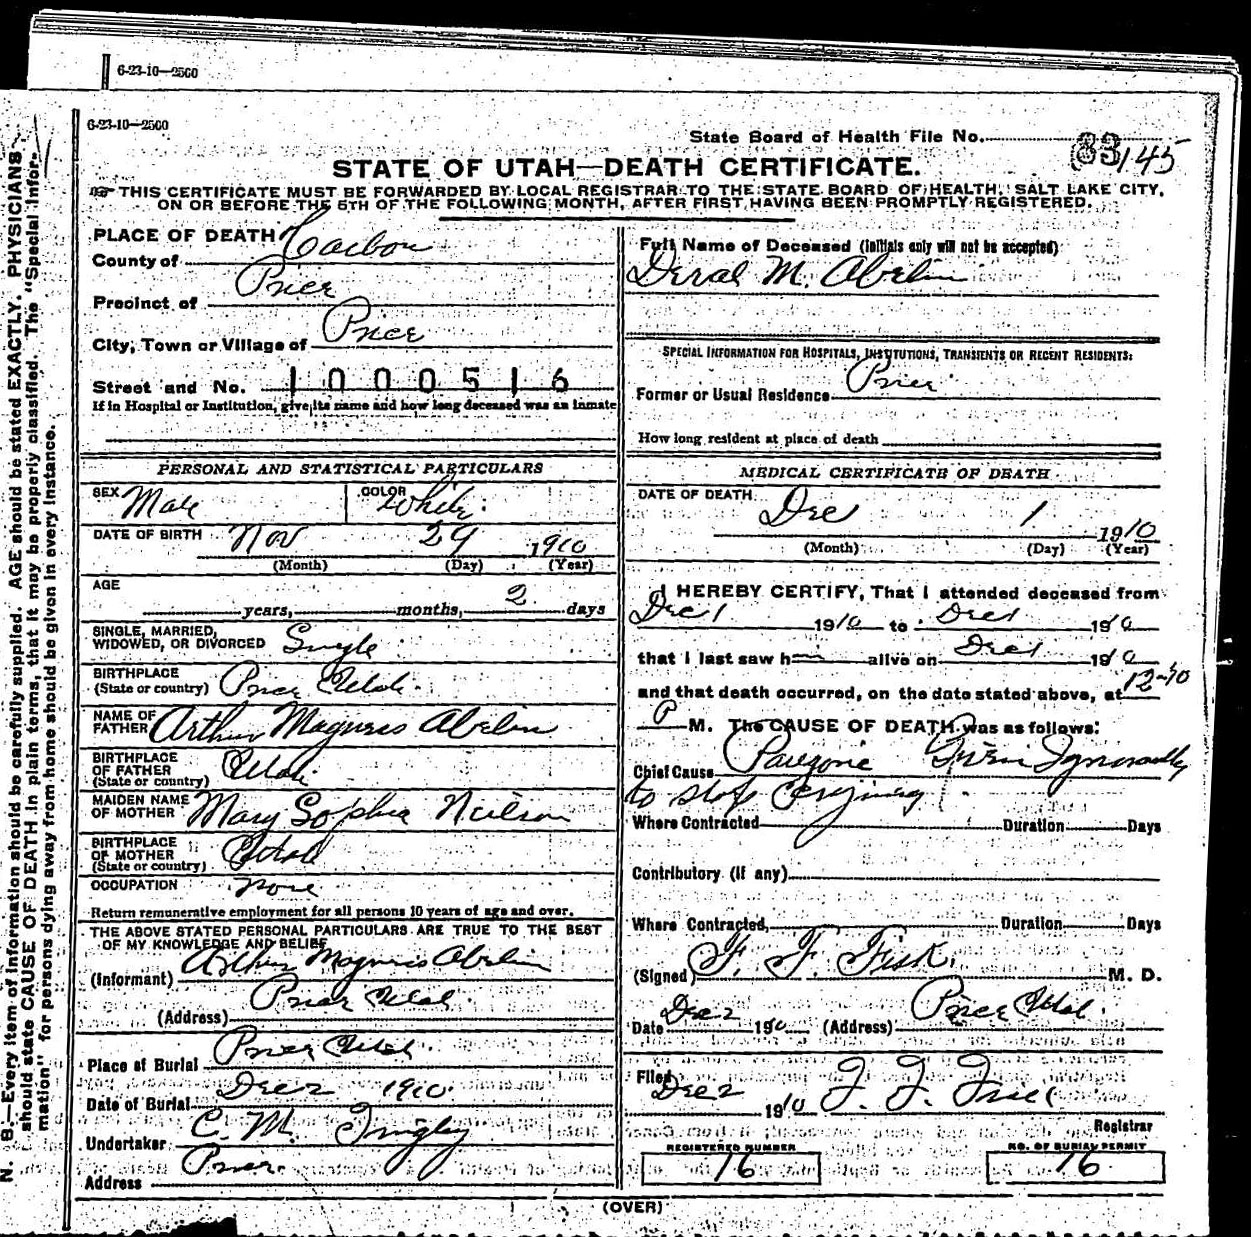 6-23-10—2500
6-23-10—2500
State Board of Health File No. 83 145
STATE OF UTAH—DEATH CERTIFICATE.
THIS CERTIFICATE MUST BE FORWARDED BY LOCAL REGISTRAR TO THE STATE BOARD OF HEALTH, SALT LAKE CITY,
ON OR BEFORE THE 5TH OF THE FOLLOWING MONTH, AFTER FIRST HAVING BEEN PROMPTLY REGISTERED.
N. B.—Every item of information should be carefully supplied. AGE should be stated EXACTLY. PHYSICIANS
should state CAUSE OF DEATH in plain terms, that it may be properly classified. The "Special Infor-
mation" for persons dying away from home should be given in every instance.
PLACE OF DEATH
County of Carbon
Precinct of Price
City, Town or Village of Price
Street and No. 1000516
If in Hospital or Institution, give its name and how long deceased was an inmate
PERSONAL AND STATISTICAL PARTICULARS
SEX Male COLOR White
DATE OF BIRTH Nov 29 1910
(Month) (Day) (Year)
AGE
years, months, 2 days
SINGLE, MARRIED,
WIDOWED, OR DIVORCED Single
BIRTHPLACE
(State or country) Price Utah
NAME OF
FATHER Arthur Magnus Abelin
BIRTHPLACE
OF FATHER Utah
(State or country)
MAIDEN NAME
OF MOTHER Mary Sophia Neilson
BIRTHPLACE
OF MOTHER Utah
(State or country)
OCCUPATION None
Return remunerative employment for all persons 10 years of age and over.
THE ABOVE STATED PERSONAL PARTICULARS ARE TRUE TO THE BEST
OF MY KNOWLEDGE AND BELIEF
(Informant) Arthur Magnus Abelin
(Address) Price Utah.
Place of Burial Price Utah.
Date of Burial Dec 2 1910
Undertaker C. M.
Address Price.
Full Name of Deceased (Initials only will not be accepted)
M. Abelin
SPECIAL INFORMATION FOR HOSPITALS, INSTITUTIONS, TRANSIENTS OR RECENT RESIDENTS:
Former or Usual Residence Price
How long resident at place of death
MEDICAL CERTIFICATE OF DEATH
DATE OF DEATH
Dec 1 1910
(Month) (Day) (Year)
I HEREBY CERTIFY, That I attended deceased from
Dec 1 1910 to Dec 1 1910
that I last saw him alive on Dec 1 1910
and that death occurred, on the date stated above, at 12-40
P M. The CAUSE OF DEATH was as follows:
Chief Cause Paregoric Given Ignorantly
to stop crying
Where Contracted Duration Days
Contributory (if any)
Where Contracted, Duration Days
(Signed) F. F. Fisk. M. D.
Date Dec 2 1910 (Address) Price Utah.
Filed
Dec 2 1910 F. F. Fisk
Registrar
REGISTERED NUMBER
16
NO. OF BURIAL PERMIT
16
(OVER)